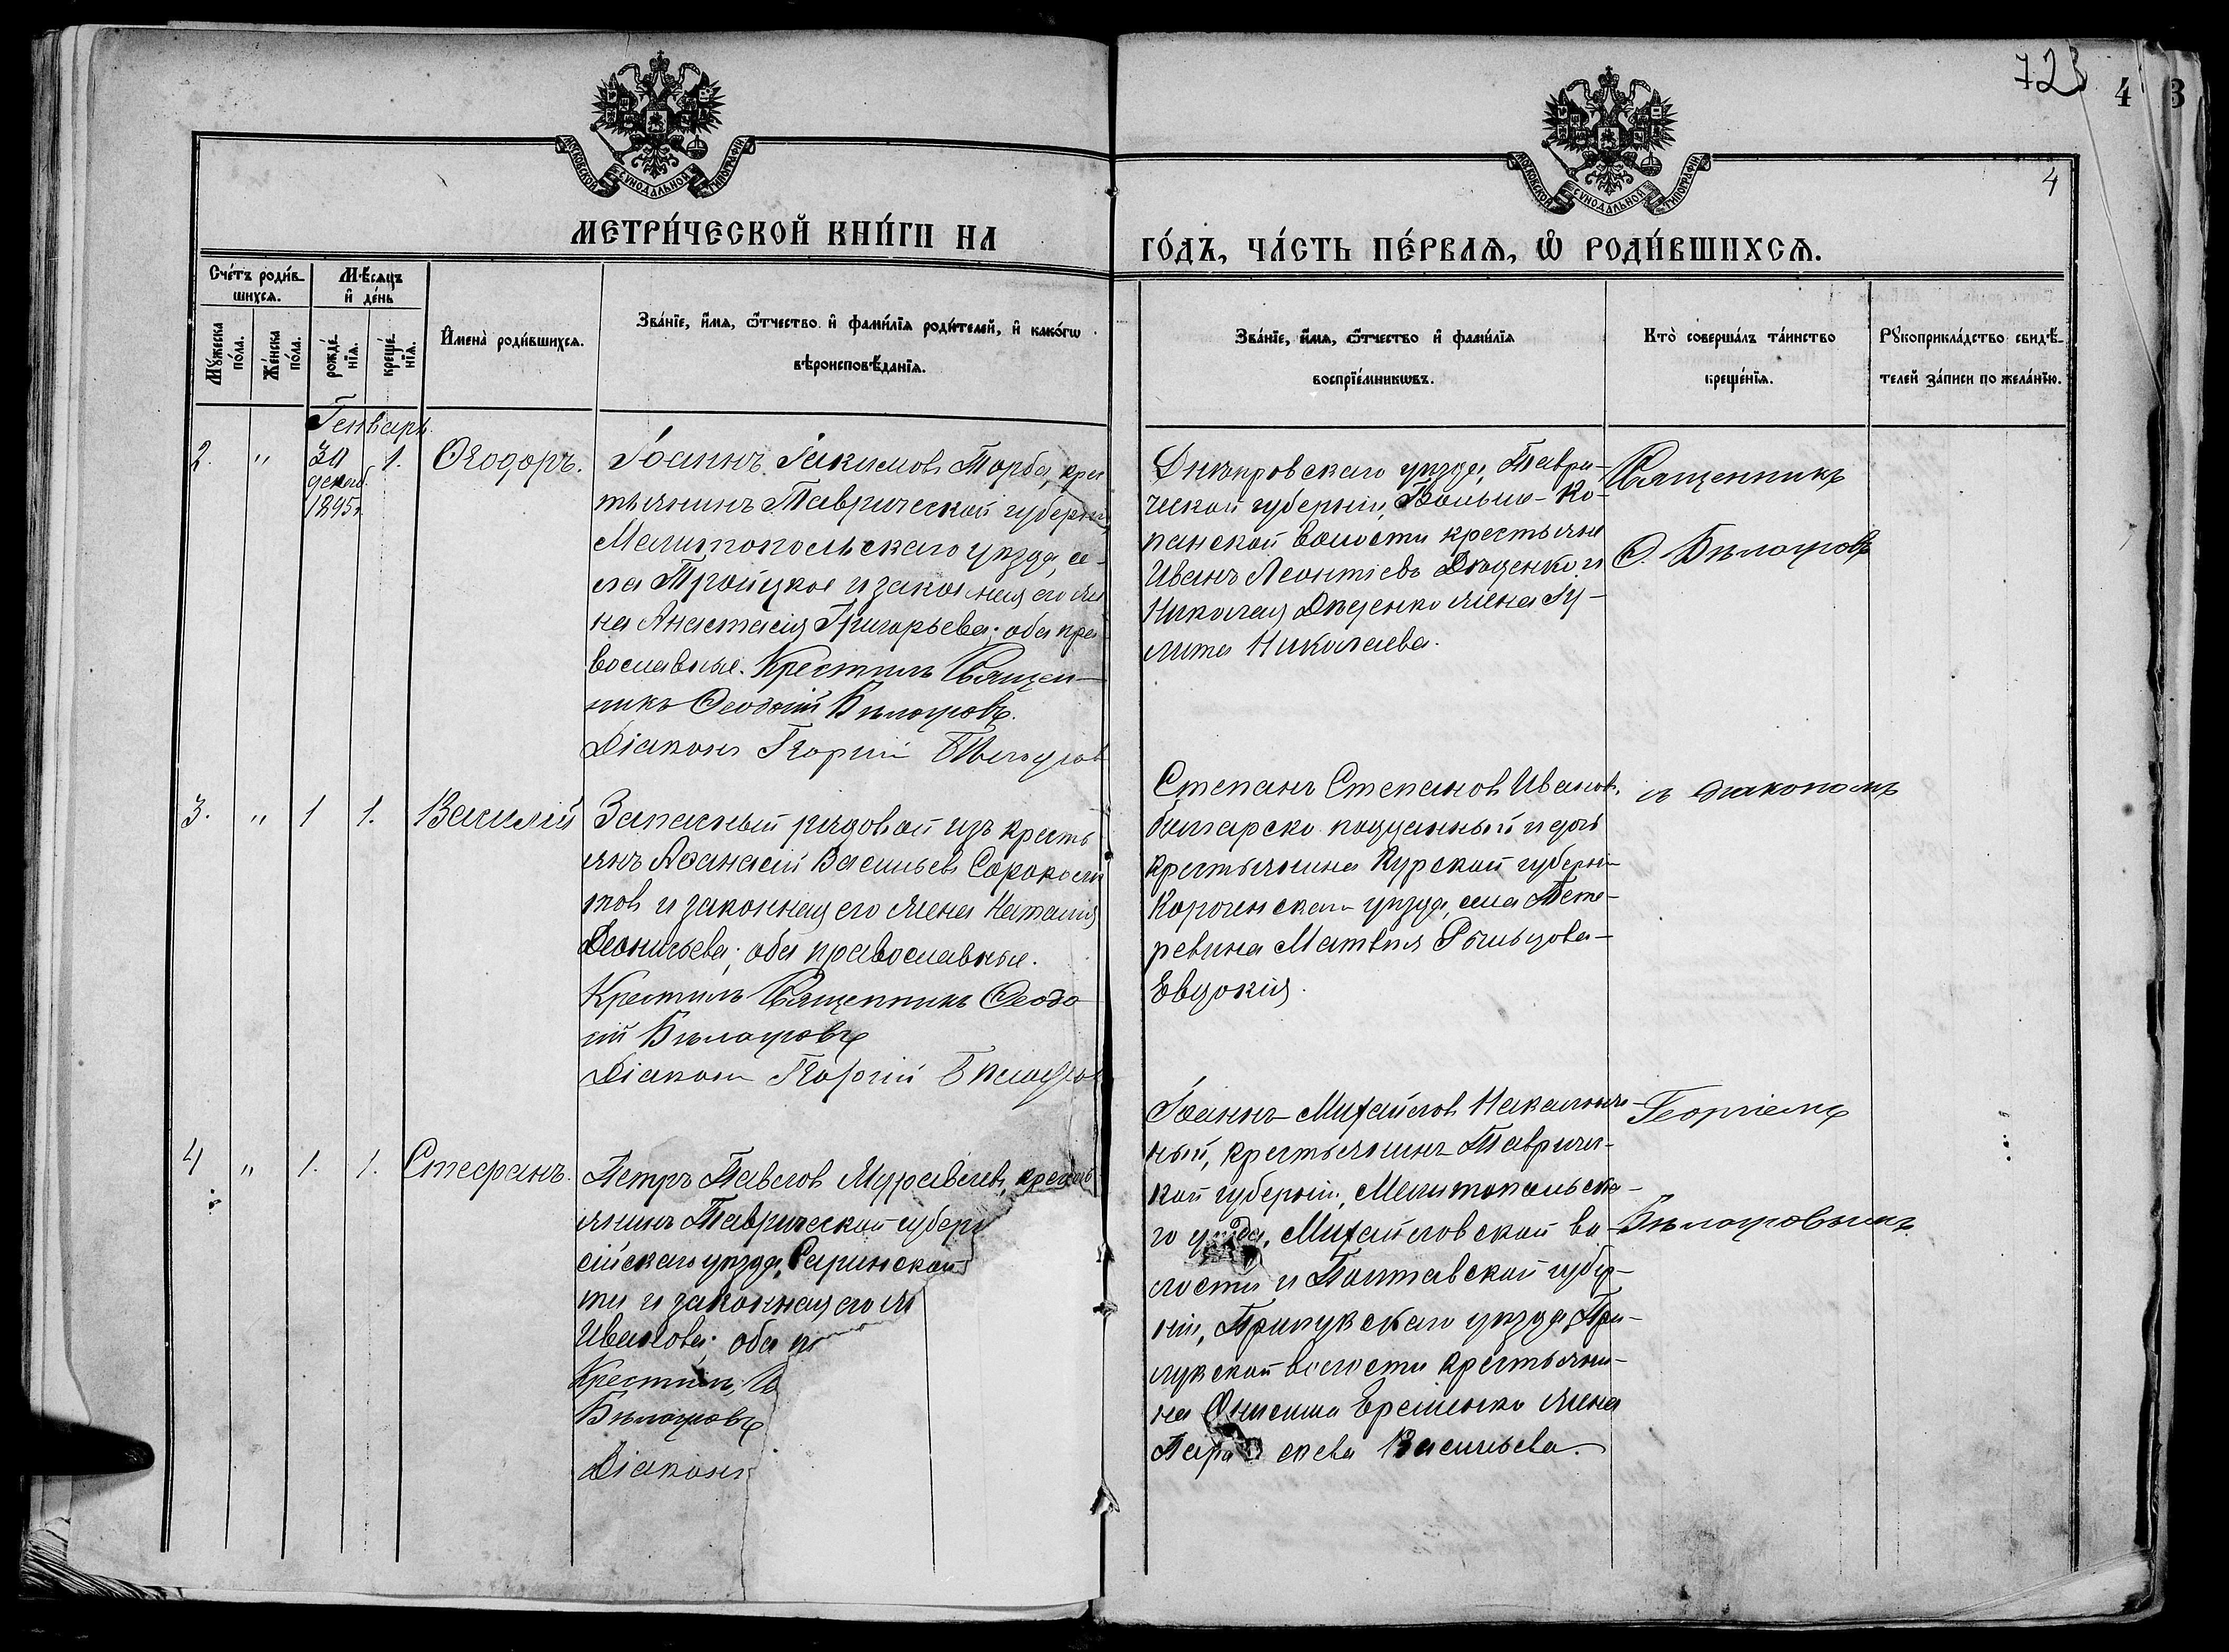 723
4 3
4
МОСКОВСКОЙ СѴНОДАЛЬНОЙ ТИПОГРАФІИ
МОСКОВСКОЙ СѴНОДАЛЬНОЙ ТИПОГРАФІИ
МЕТРИ́ЧЕСКОЙ КНИ́ГИ НА
ГО́ДЪ, ЧА́СТЬ ПЕ́РВАѦ, Ѡ҆ РОДИ́ВШИХСѦ.
Сче́тъ роди́в-
шихсѧ.
Мѣ́сѧцъ
и҆ де́нь
Мꙋ́жеска
по́ла.
Же́нска
по́ла.
рожде́-
нїѧ.
креще́-
нїѧ.
И҆мена̀ роди́вшихсѧ.
Зва́нїе, и҆́мѧ, ѻ҆́тчество и҆ фами́лїѧ роди́телей, и҆ како́гѡ
вѣроисповѣ́данїѧ.
Зва́нїе, и҆́мѧ, ѻ҆́тчество и҆ фами́лїѧ
воспрїе́мникѡвъ.
Кто̀ соверша́лъ та́инство
креще́нїѧ.
Рꙋкоприкла́дство свидѣ́-
телей за́писи по жела́нїю.
Генварь
2. " 30 1. Ѳеодоръ.
декаб.
1895 г.
Іоаннъ Іакимовъ Торба, крес
тьянинъ Таврической губерніи,
Мелитопольскаго уѣзда, се-
ла Тройцкое и законная его же
на Анастасія Григорьева; оба пра
вославные. Крестилъ Священ-
никъ Ѳеодосій Бѣлоусовъ.
Діаконъ Георгій Бѣлоусов
Днѣпровскаго уѣзда, Таври-
ческой губерніи, Больше-Ко-
панской волости крестьяне
Иванъ Леонтіевъ Доценко и
Николая Доценко жена Іу-
лита Николаева.
Священникъ
Ѳ. Бѣлоусовъ
3. " 1 1. Василій
Запасный рядовой изъ кресть
янъ Аѳанасій Васильевъ Сороколи
товъ и законная его жена Наталія
Леонтьева; оба православные.
Крестилъ Священникъ Ѳеодо
сій Бѣлоусовъ
Діаконъ Георгій Бѣлоусов
Степанъ Степановъ Ивановъ,
болгарско подданный и дочь
крестьянина Курской губерніи
Корочинскаго уѣзда, села
Матвѣя Рыльцова-
Евдокія.
съ діакономъ
4 " 1. 1. Стефанъ.
Петръ Павловъ Муравлевъ, кресть
янинъ Таврической губер
сійскаго уѣзда,
ти и законная его ж
Иванова; оба п
Крестилъ
Бѣлоусовъ
Діаконъ
Іоаннъ Михайловъ
ный, крестьянинъ Тавриче-
кой губерніи, Мелитопольска-
го уѣзда, Михайловской во-
лости и Полтавской губер-
ніи, Прилукскаго уѣзда, При-
лукской волости крестьяни-
на Онисима Еременко жена
Параскева Васильева.
Георгіемъ
Бѣлоусовымъ.